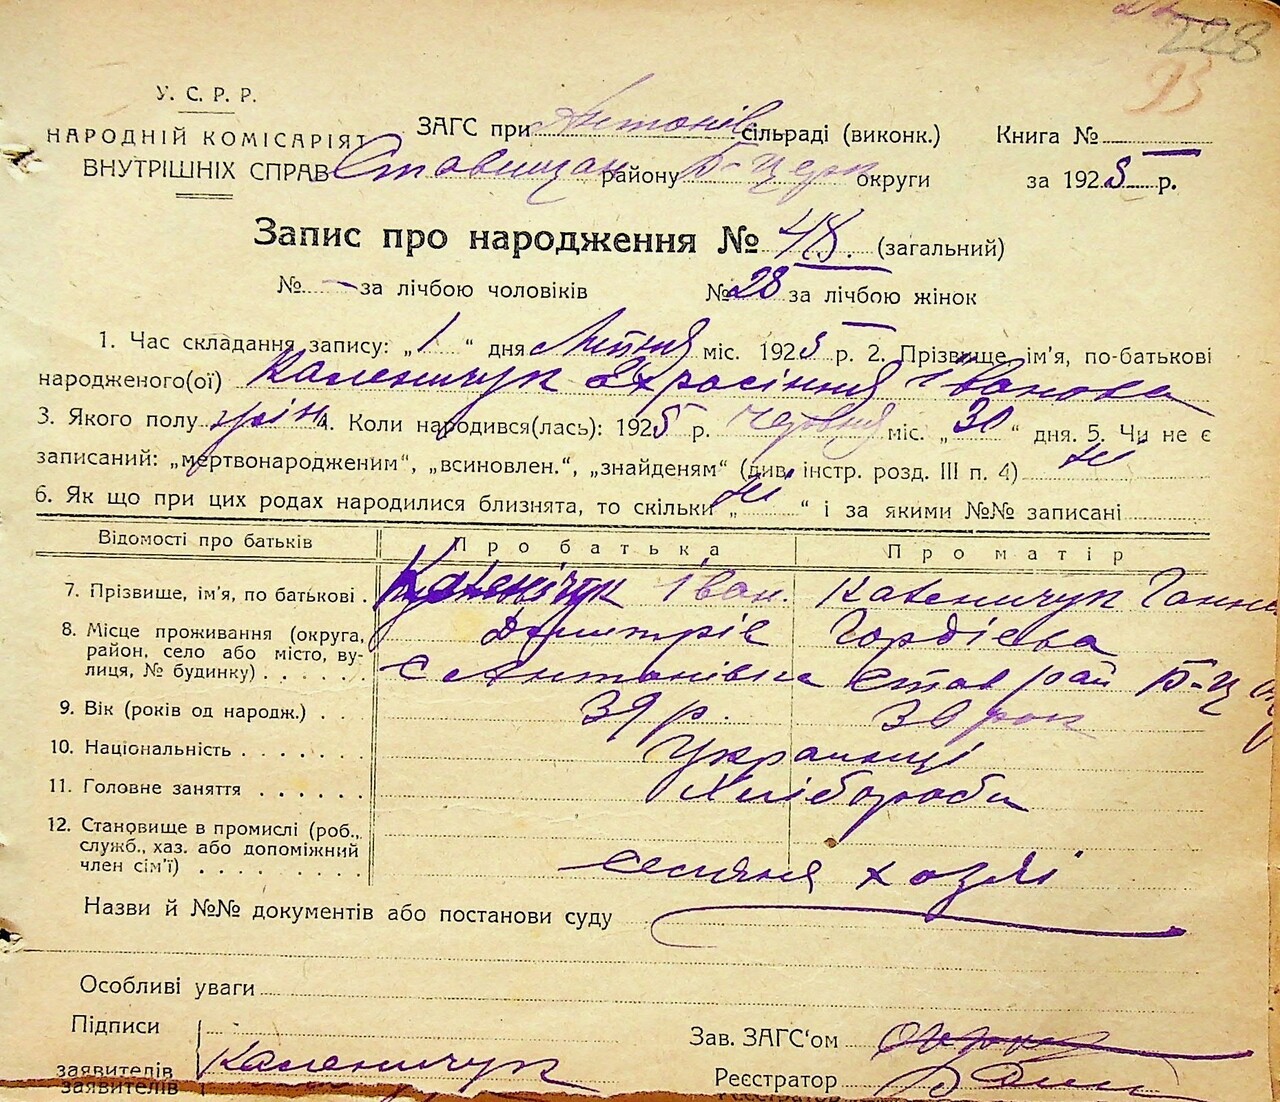 228
93
У. С. Р. Р.
НАРОДНІЙ КОМІСАРІЯТ
ВНУТРІШНІХ СПРАВ
ЗАГС при Антонів сільраді (виконк.)
Книга №
Ставищан району Б-Церк округи
за 1925 р.
Запис про народження № 48. (загальний)
№ — за лічбою чоловіків № 28 за лічбою жінок
1. Час складання запису: „1“ дня Липня міс. 1925 р. 2. Прізвище ім'я, по-батькові
народженого(ої) Каленичук Іванова
3. Якого полу жін 4. Коли народився(лась): 1925 р. Червня міс. „30“ дня. 5. Чи не є
записаний: „мертвонародженим“, „всиновлен.“, „знайденям“ (див. інстр. розд. III п. 4) ні
6. Як що при цих родах народилися близнята, то скільки „ні“ і за якими №№ записані
Відомості про батьків Про батька Про матір
7. Прізвище, ім'я, по батькові . Каленічук Іван. Каленичук Ганна
Дмитрів Гордієва
8. Місце проживання (округа,
район, село або місто, ву-
лиця, № будинку) . . . . . с Антонівка Став рай Б-Ц
9. Вік (років од народж.) . . . 39 р. 30 рок
10. Національність . . . . . . Українці
11. Головне заняття . . . . . . Хлібороби
12. Становище в промислі (роб.,
служб., хаз. або допоміжний
член сім'ї) . . . . . . . . селяне хозяі
Назви й №№ документів або постанови суду
Особливі уваги
Підписи
заявителів Каленичук
Зав. ЗАГС'ом
Реєстратор
заявителів